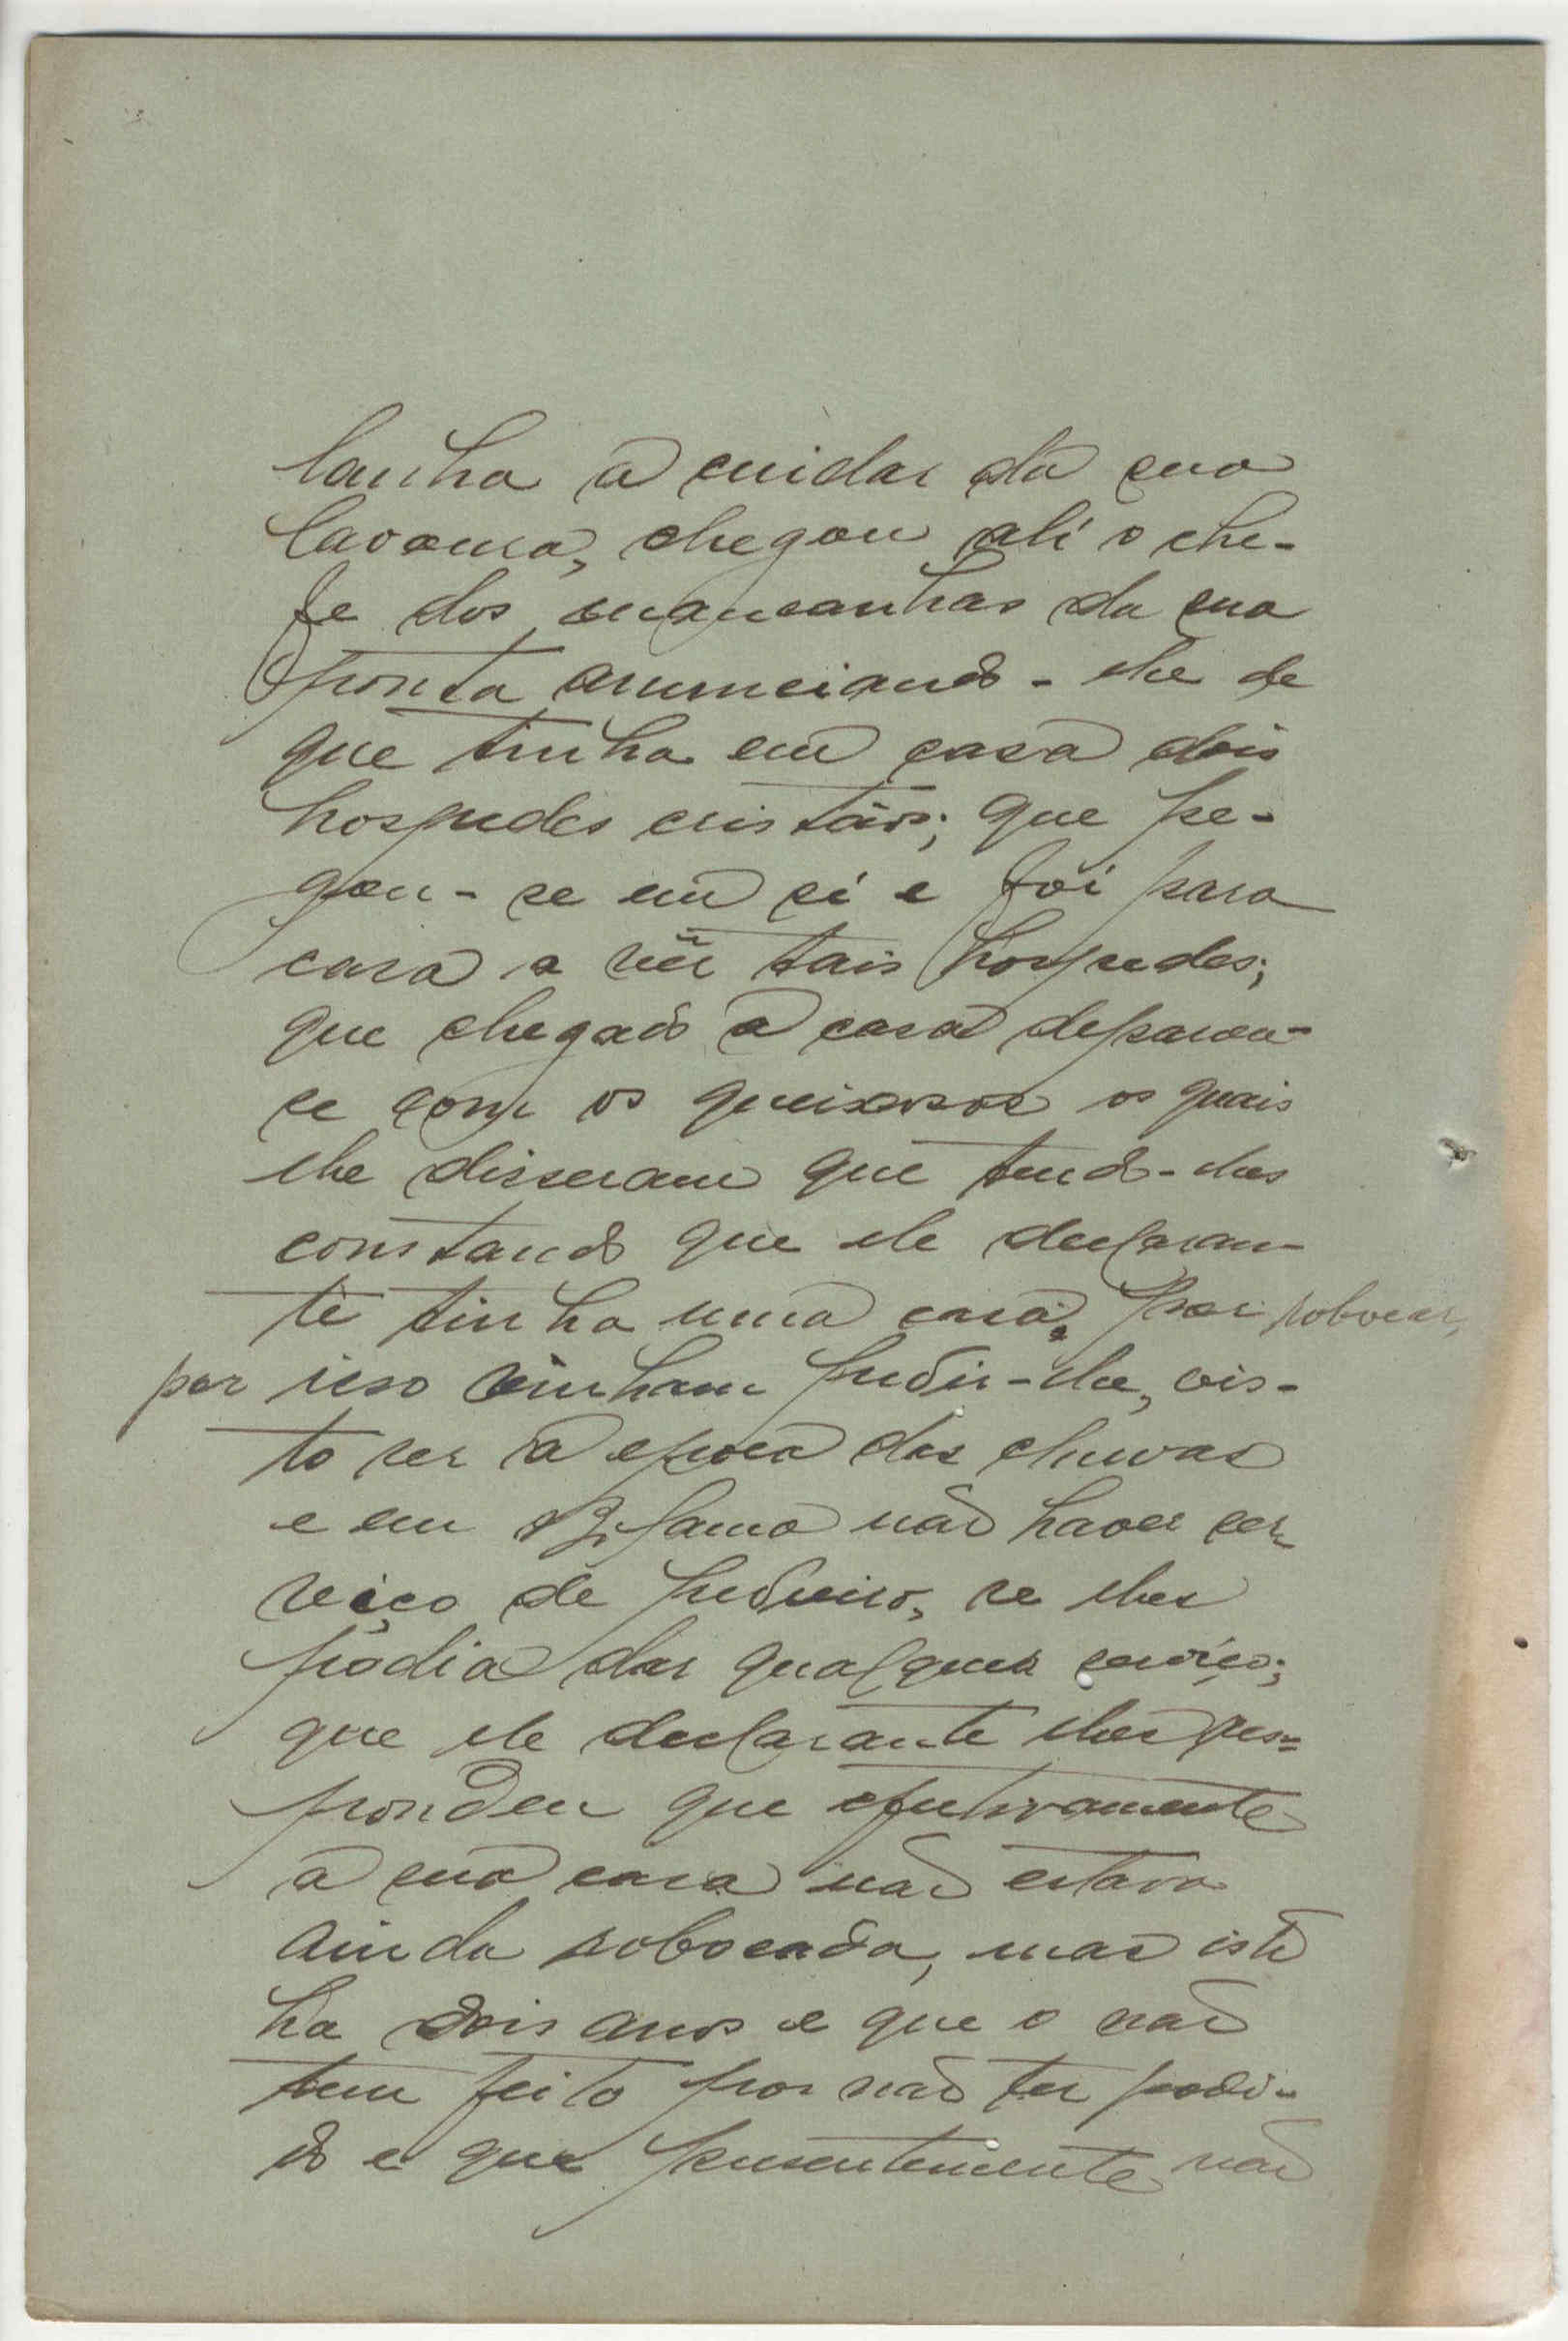 lanha a cuidar da sua
lavoura, chegou ali o che-
fe dos mancanhas da sua
ponta anunciando-lhe de
que tinha em casa dois
hospedes cristãos; que pe-
gou-se em si e foi para
casa a vêr tais hospedes;
que chegado a casa deparou-
se com os queixosos os quais
lhe disseram que tendo-lhes
constando que ele declaran-
te tinha uma casa por robocar,
por isso vinham pedir-lhe, vis-
to ser a epoca das chuvas
e em Bolama não haver ser-
viço de pedreiro, se lhes
podia dar qualquer serviço;
que ele declarante lhes res-
pondeu que efectivamente
a sua casa não estava
ainda robocada, mas isto
ha dois anos e que o não
tem feito por não ter podi-
do e que presentemente não